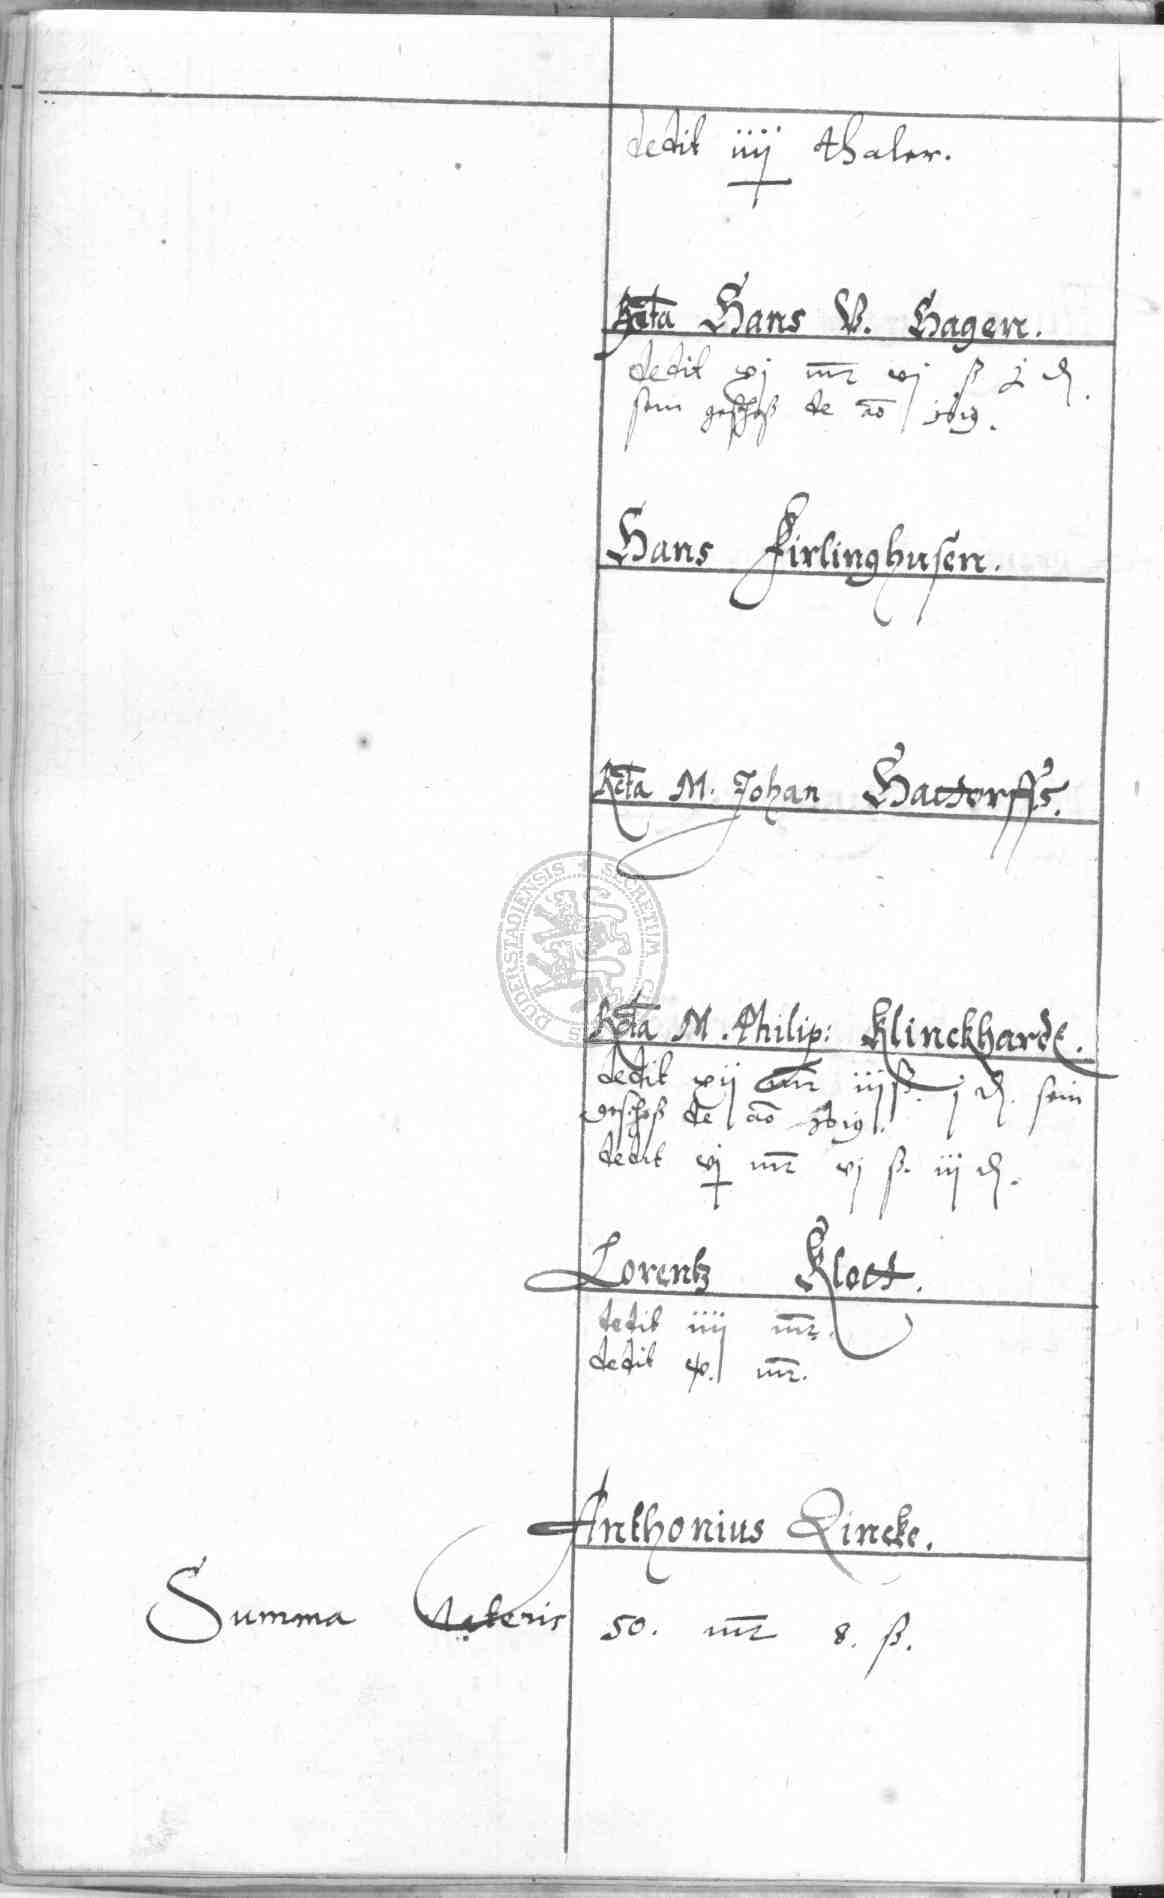 dedit iiij thaler.
Rcta Hans V. Hagen.
dedit xj mr vj ß j d.
sein geschoß de ao 1619.
Hans Firlinghusen.
Rcta M. Johan Hattorffs.
DUDERSTADIENSIS SECRETUM
Rcta M. Philip: Klinckhardt.
dedit xij mr iij ß. j d. sein
geschoß de ao 1619.
dedit vj mr vj ß. iij d.
Lorentz Klott.
dedit iiij mr.
dedit x. mr.
Anthonius Lincke.
Summa lateris 50. mr 8. ß.